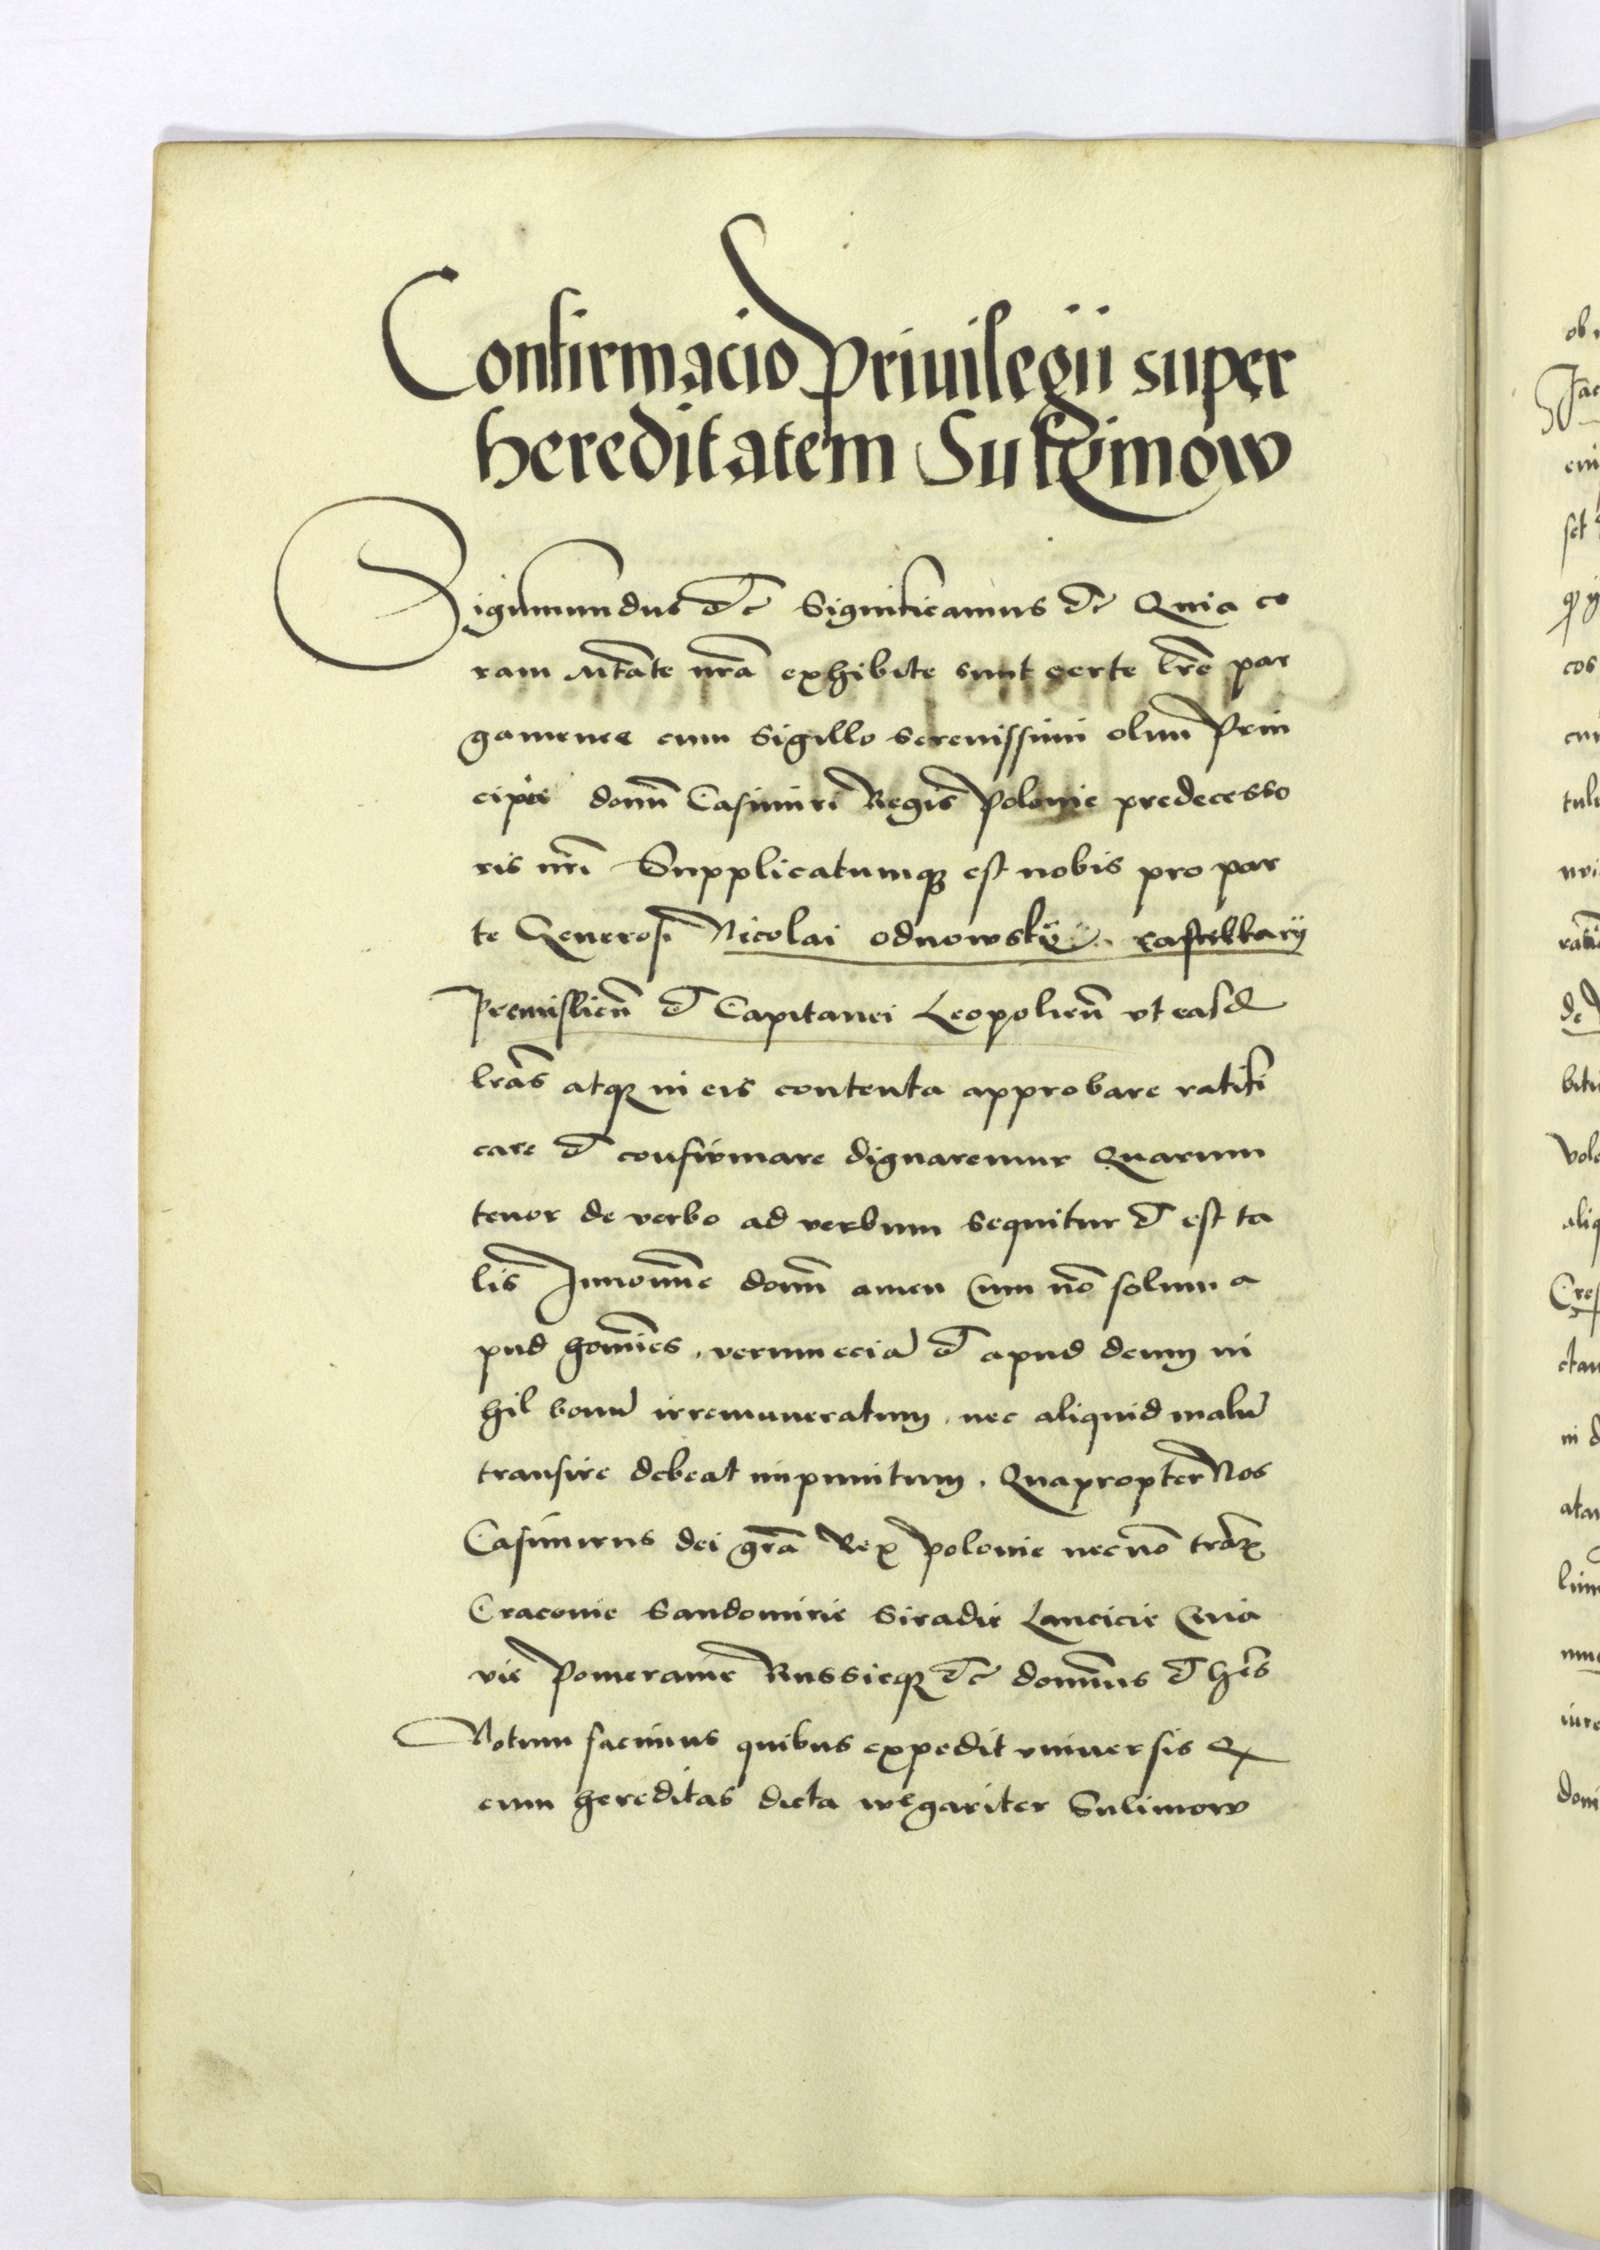 Confirmacio Privilegii super
hereditatem Sulimow
Sigismundus etc Significamus etc Quia co
ram Mtate nra exhibite sunt certe lre par
gamenee cum Sigillo serenissimi olim Prin
cipis domi Casimiri Regis Polonie predecesso
ris nri Supplicatumq est nobis pro par
te Generosi Nicolai odnowsky castellany
Premislien et Capitanei Leopolien vt easd
lras atq in eis contenta approbare ratifi
care et confirmare dignaremur Quarum
tenor de verbo ad verbum sequitur et est ta
lis Innomine domi amen Cum no solum a
pud homies . verumecia et apud deum ni
hil bonu irremuneratum . nec aliquid malu
transire debeat impunitum . Quapropter Nos
Casimirus dei gra Rex polonie necno trar
Cracovie Sandomirie Siradie Lancicie Cuia
vie Pomeranie Russieq etc dominus et hes
Notum facimus quibus expedit vniuersis Q
cum hereditas dicta wlgariter Sulimow